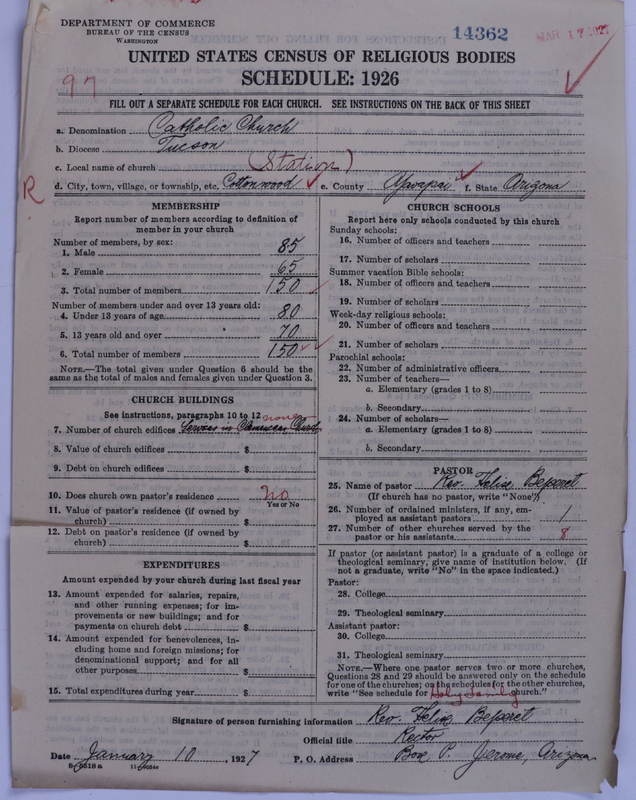 DEPARTMENT OF COMMERCE
BUREAU OF THE CENSUS
WASHINGTON
14362
MAR 17 1927
UNITED STATES CENSUS OF RELIGIOUS BODIES
SCHEDULE: 1926
97
FILL OUT A SEPARATE SCHEDULE FOR EACH CHURCH. SEE INSTRUCTIONS ON THE BACK OF THIS SHEET
a. Denomination Catholic Church
b. Diocese Tucson
c. Local name of church (Station)
R
d. City, town, village, or township, etc. Cottonwood e. County Yavapai f. State Arizona
MEMBERSHIP
Report number of members according to definition of
member in your church
Number of members, by sex:
1. Male 85
2. Female 65
3. Total number of members 150
Number of members under and over 13 years old:
4. Under 13 years of age 80
5. 13 years old and over 70
6. Total number of members 150
NOTE.—The total given under Question 6 should be the
same as the total of males and females given under Question 3.
CHURCH BUILDINGS
See instructions, paragraphs 10 to 12
none
7. Number of church edifices Services in
8. Value of church edifices $
9. Debt on church edifices $
10. Does church own pastor's residence No
Yes or No
11. Value of pastor's residence (if owned by
church) $
12. Debt on pastor's residence (if owned by
church) $
EXPENDITURES
Amount expended by your church during last fiscal year
13. Amount expended for salaries, repairs,
and other running expenses; for im-
provements or new buildings; and for
payments on church debt $
14. Amount expended for benevolences, in-
cluding home and foreign missions; for
denominational support; and for all
other purposes $
15. Total expenditures during year $
CHURCH SCHOOLS
Report here only schools conducted by this church
Sunday schools:
16. Number of officers and teachers
17. Number of scholars
Summer vacation Bible schools:
18. Number of officers and teachers
19. Number of scholars
Week-day religious schools:
20. Number of officers and teachers
21. Number of scholars
Parochial schools:
22. Number of administrative officers
23. Number of teachers—
a. Elementary (grades 1 to 8)
b. Secondary
24. Number of scholars—
a. Elementary (grades 1 to 8)
b. Secondary
PASTOR
25. Name of pastor Rev. Felix Beparet
(If church has no pastor, write "None")
26. Number of ordained ministers, if any, em-
ployed as assistant pastors 1
27. Number of other churches served by the
pastor or his assistants 8
If pastor (or assistant pastor) is a graduate of a college or
theological seminary, give name of institution below. (If
not a graduate, write "No" in the space indicated.)
Pastor:
28. College
29. Theological seminary
Assistant pastor:
30. College
31. Theological seminary
NOTE.—Where one pastor serves two or more churches,
Questions 28 and 29 should be answered only on the schedule
for one of the churches; on the schedules for the other churches,
write "See schedule for Holy Family church."
Signature of person furnishing information Rev. Felix Beparet
Official title Rector
Date January 10, 1927 P. O. Address Box P. Jerome, Arizona